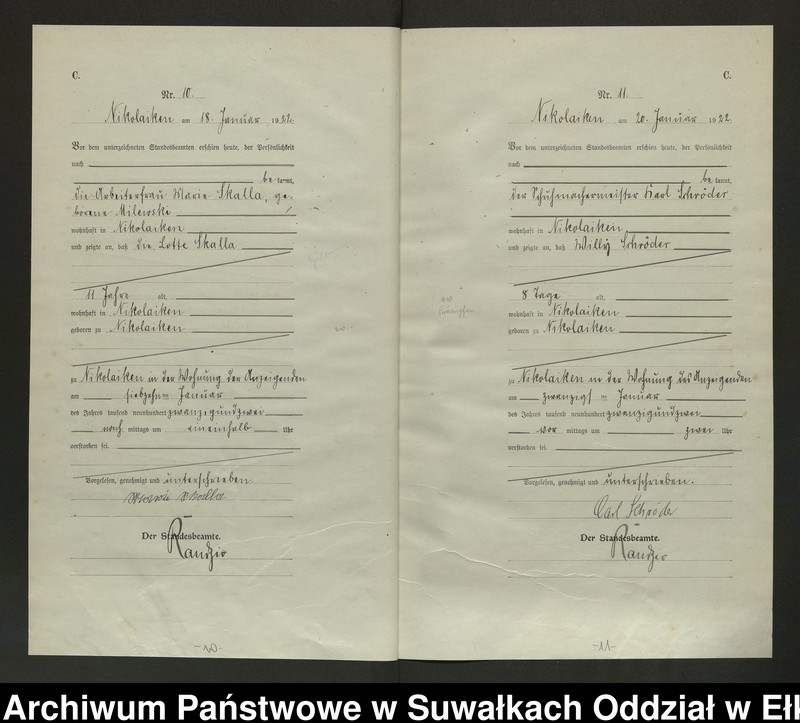 C.
Nr. 10.
Nikolaiken am 18. Januar 1922.
Vor dem unterzeichneten Standesbeamten erschien heute, der Persönlichkeit
nach
be kannt,
die Arbeiterfrau Marie Skalla, ge-
borene Milewski
wohnhaft in Nikolaiken
und zeigte an, daß die Lotte Skalla
11 Jahre alt,
wohnhaft in Nikolaiken
geboren zu Nikolaiken
zu Nikolaiken in der Wohnung der Anzeigenden
am siebzehn ten Januar
des Jahres tausend neunhundert zwanzigundzwei
nach mittags um eineinhalb Uhr
verstorben sei.
Vorgelesen, genehmigt und unterschrieben
Marie Skalla
Der Standesbeamte.
Randzio
-10-
C.
Nr. 11.
Nikolaiken am 20. Januar 1922.
Vor dem unterzeichneten Standesbeamten erschien heute, der Persönlichkeit
nach
be kannt,
der Schuhmachermeister Karl Schröder
wohnhaft in Nikolaiken,
und zeigte an, daß Willy Schröder
8 Tage alt,
wohnhaft in Nikolaiken
geboren zu Nikolaiken
zu Nikolaiken in der Wohnung des Anzeigenden
am zwanzigst en Januar
des Jahres tausend neunhundert zwanzigundzwei
vor mittags um zwei Uhr
verstorben sei.
Vorgelesen, genehmigt und unterschrieben.
Carl Schröder
Der Standesbeamte.
Randzio
-11-
Archiwum Państwowe w Suwałkach Oddział w Eł